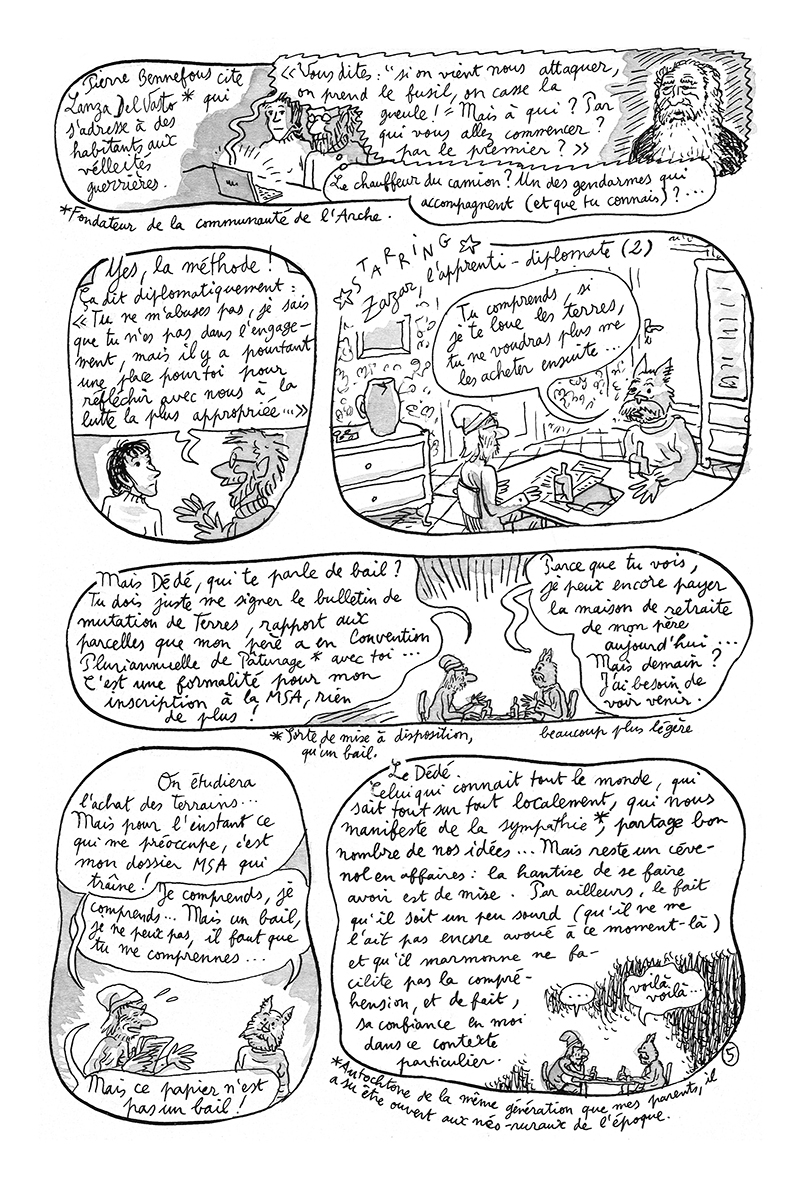 Pierre Bennefous cite
Lanza Del Vasto * qui
s'adresse à des
habitants aux
velléités
guerrières.
« Vous dites : "si on vient nous attaquer,
on prend le fusil, on casse la
gueule !" Mais à qui ? Par
qui vous allez commencer ?
par le premier ? »
Le chauffeur du camion ? Un des gendarmes qui
accompagnent (et que tu connais) ? ...
*Fondateur de la communauté de l'Arche.
Yes, la méthode !
Ça dit diplomatiquement :
« Tu ne m'abuses pas, je sais
que tu n'es pas dans l'engage-
ment, mais il y a pourtant
une place pour toi pour
réfléchir avec nous à la
lutte la plus appropriée... »
STARRING
Zazar, l'apprenti-diplomate (2)
Tu comprends, si
je te loue les terres,
tu ne voudras plus me
les acheter ensuite...
Mais Dédé, qui te parle de bail ?
Tu dois juste me signer le bulletin de
mutation de Terres, rapport aux
parcelles que mon père a en Convention
Pluriannuelle de Pâturage * avec toi ...
C'est une formalité pour mon
inscription à la MSA, rien
de plus !
Parce que tu vois,
je peux encore payer
la maison de retraite
de mon père
aujourd'hui ...
Mais demain ?
J'ai besoin de
voir venir.
*Sorte de mise à disposition, beaucoup plus légère
qu'un bail.
On étudiera
l'achat des terrains...
Mais pour l'instant ce
qui me préoccupe, c'est
mon dossier MSA qui
traîne !
Je comprends, je
comprends... Mais un bail,
je ne peux pas, il faut que
tu me comprennes ...
Mais ce papier n'est
pas un bail !
Le Dédé.
Celui qui connait tout le monde, qui
sait tout sur tout localement, qui nous
manifeste de la sympathie*, partage bon
nombre de nos idées... Mais reste un céve-
nol en affaires : la hantise de se faire
avoir est de mise. Par ailleurs, le fait
qu'il soit un peu sourd (qu'il ne me
l'ait pas encore avoué à ce moment-là)
et qu'il marmonne ne fa-
cilite pas la compré-
hension, et de fait,
sa confiance en moi
dans ce contexte
particulier.
...
voilà
voilà...
5
*Autochtone de la même génération que mes parents, il
a su être ouvert aux néo-ruraux de l'époque.